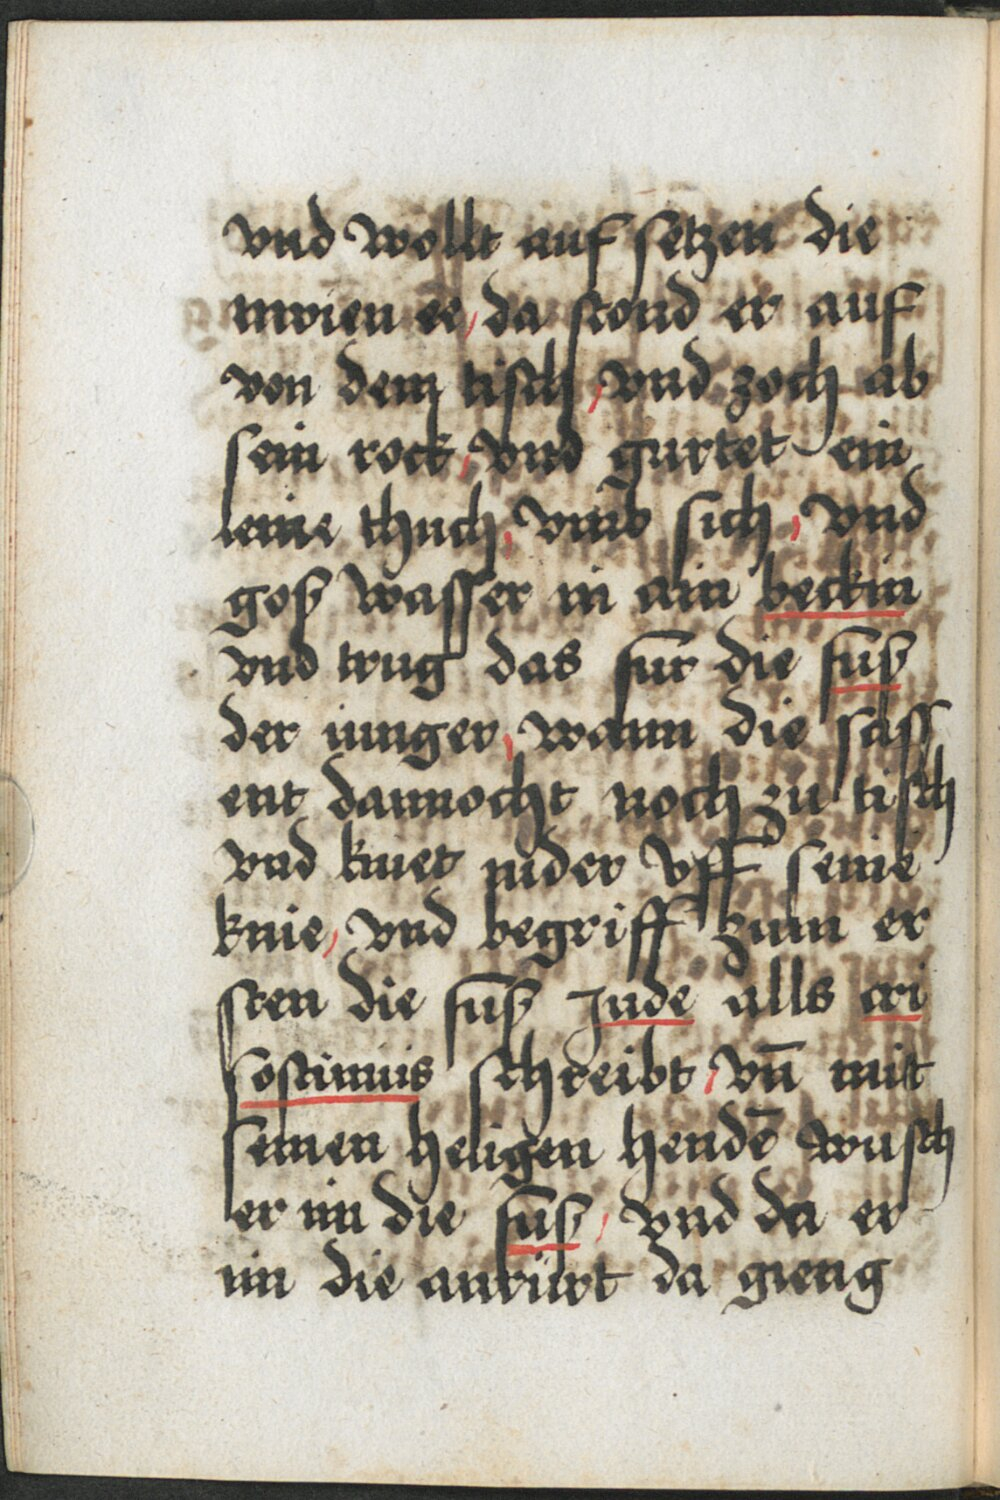 vnd wollt auf setzen die
nwien ee / da stond er auf
von dem tisch / vnd zoch ab
sein rock / vnd gurtet ein
leine thuch / vmb sich / vnd
gosz wasser in ain beckin
vnd trug das fur die fusz
der iunger / wann die sass
ent dannocht noch zu tisch
vnd kniet nider vff seine
knie / vnd begriff zum er
sten die fusz Jude alls cri
sostimus schreibt / vn̄ mit
seinen heligen hendē wusch
er im die fusz / vnd da er
im die anrürt da gieng